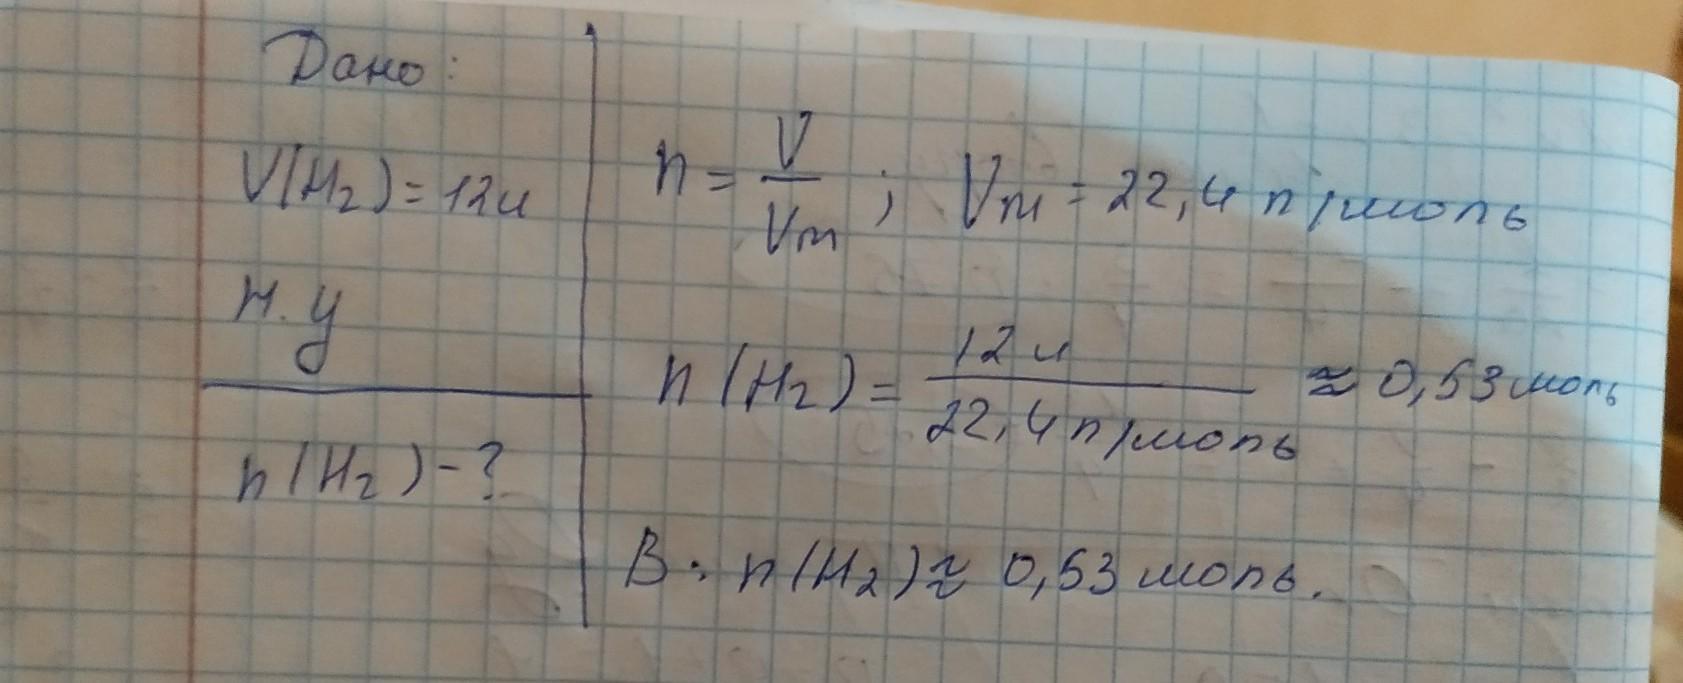 Дано:
V(H₂) = 12л
н.у
n(H₂) - ?
n = V/Vm ; Vm = 22,4 л/моль
n(H₂) = 12л / 22,4 л/моль ≈ 0,53 моль
В: n(H₂) ≈ 0,53 моль.